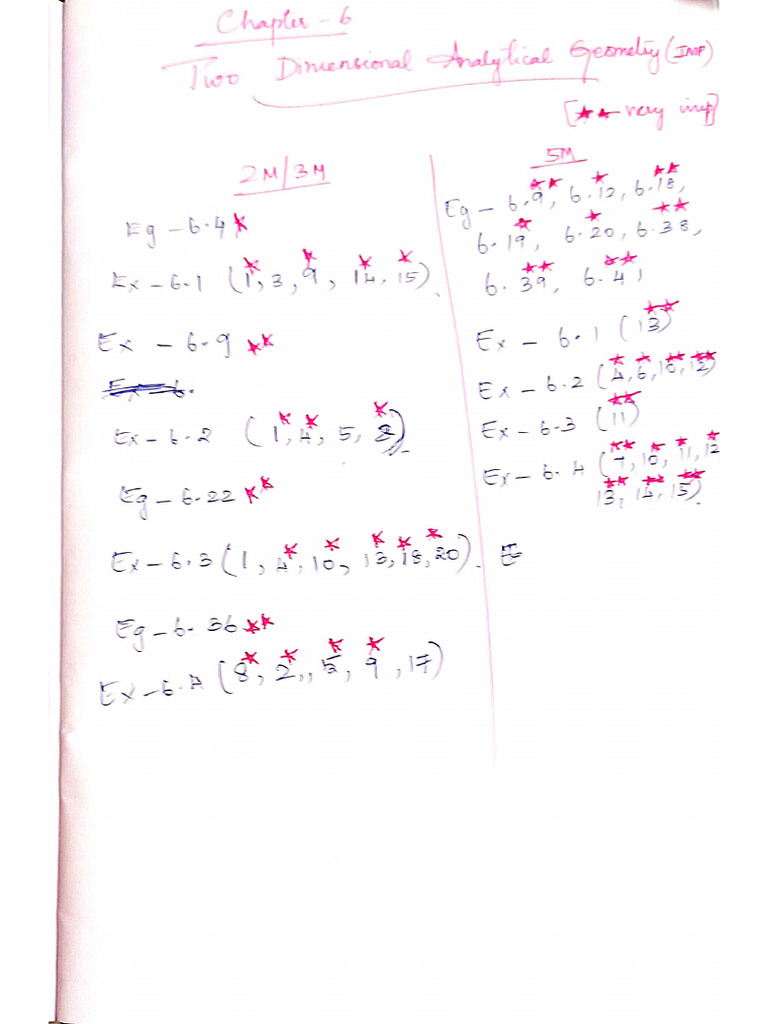 Chapter - 6
Two Dimensional Analytical Geometry (IMP)
[★★ very imp]
2M/3M
Eg - 6.4★
Ex - 6.1 (1★, 3, 9★, 14★, 15★).
Ex - 6.9 ★★
Ex - 6.2 (1★, 4★, 5, 8★).
Eg - 6.22 ★★
Ex - 6.3 (1, 4★, 10★, 13★, 18★, 20★).
Eg - 6.36 ★★
Ex - 6.4 (8★, 2★, 5★, 9★, 17)
5M
Eg - 6.9★★, 6.12★, 6.18★★,
6.19★, 6.20★, 6.38★★,
6.39★★, 6.41★★
Ex - 6.1 (13★★)
Ex - 6.2 (4★, 6★, 10★★, 12★★)
Ex - 6.3 (11★★)
Ex - 6.4 (7★★, 10★, 11★, 12★
13★★, 14★★, 15★★).